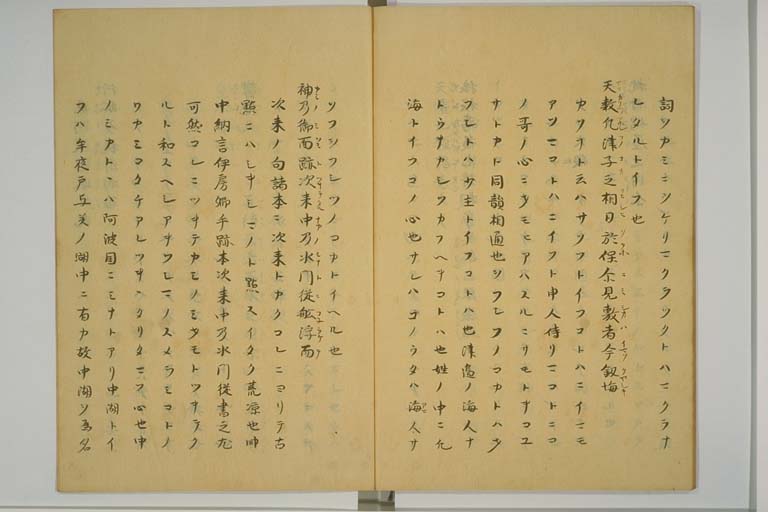 詞ツカミニシケリマクラツクトハマクラナ
レタルトイフ也
天數凡津子之相日於保尓見敷者今叙悔
カソフト云ハサソフトイフコトハニイマモ
アツマコトハニイフト申人侍リマコトニコ
ノ哥ノ心ニヲモヒアハスルニサモトオホユ
サトカト同韻相通也ソフレフノコカトハオ
フシトハサ主トイフコトハ也津邊ノ海人ナ
トヲサナヒツカフヘキコトハ也姓ノ中ニ凡
海トイフコノ心也サレハコノウタハ海人サ
ソフシフレツノコカトイヘル也
神乃御面跡次来中乃水門従舩浮而
次来ノ句諸本ニ次来トカクコレニヨリテ古
點ニハシキシマノト點スイタク荒凉也帥
中納言伊房卿手跡本次来中乃水門従書之尤
可然コレニツキテカミノミオモトツキテク
ルト和スヘシアキツシマノスメラミコトノ
ワカミコタチアレツキヘクリタマフ心也中
ノミナトハ阿波国ニミナトアリ中湖トイ
フハ牟夜戸与奥ノ湖中ニ有カ故中湖ヲ為名